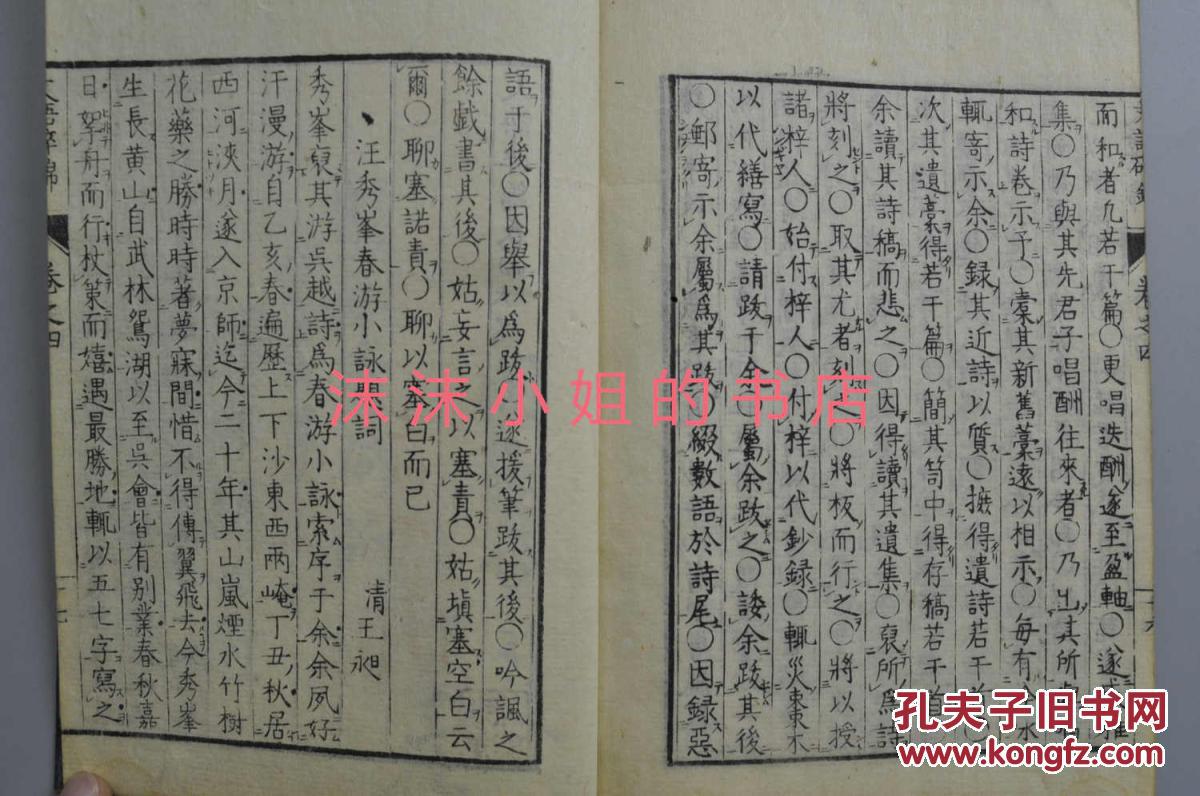 而和者凡若干篇○更唱迭酬遂至盈軸○遂
集○乃與其先君子唱酬往來者○乃出其所
和詩卷示予○橐其新舊藁遠以相示○每有
輒寄示余○録其近詩以質○摭得遺詩若干
次其遺藁得若干篇○簡其笥中得存稿若干首
余讀其詩稿而悲之○因得讀其遺集○裒所爲詩
將刻之○取其尤者刻○將板而行之○將以授
諸梓人○始付梓人○付梓以代鈔録○輒災東棗不
以代繕寫○請跋于余○屬余跋之○諉余跋其後
○郵寄示余屬爲其跋○綴數語於詩尾○因録惡
卷之四
語于後○因舉以爲跋○遂援筆跋其後○吟諷之
餘戲書其後○姑妄言之以塞責○姑塡塞空白云
爾○聊塞諾責○聊以塞白而已
汪秀峯春游小詠題詞
清王昶
秀峯裒其游吳越詩爲春游小詠索序于余余夙好
汗漫游自乙亥春遍歷上下沙東西兩崦丁丑秋居
西河浹月遂入京師迄今二十年其山嵐煙水竹樹
花藥之勝時時著夢寐間惜不得傳翼飛去今秀峯
生長黄山自武林鴛湖以至吳會皆有别業春秋嘉
日拏舟而行杖策而嬉遇最勝地輒以五七字寫之
卷之四
沫沫小姐的书店
孔夫子旧书网
www.kongfz.com